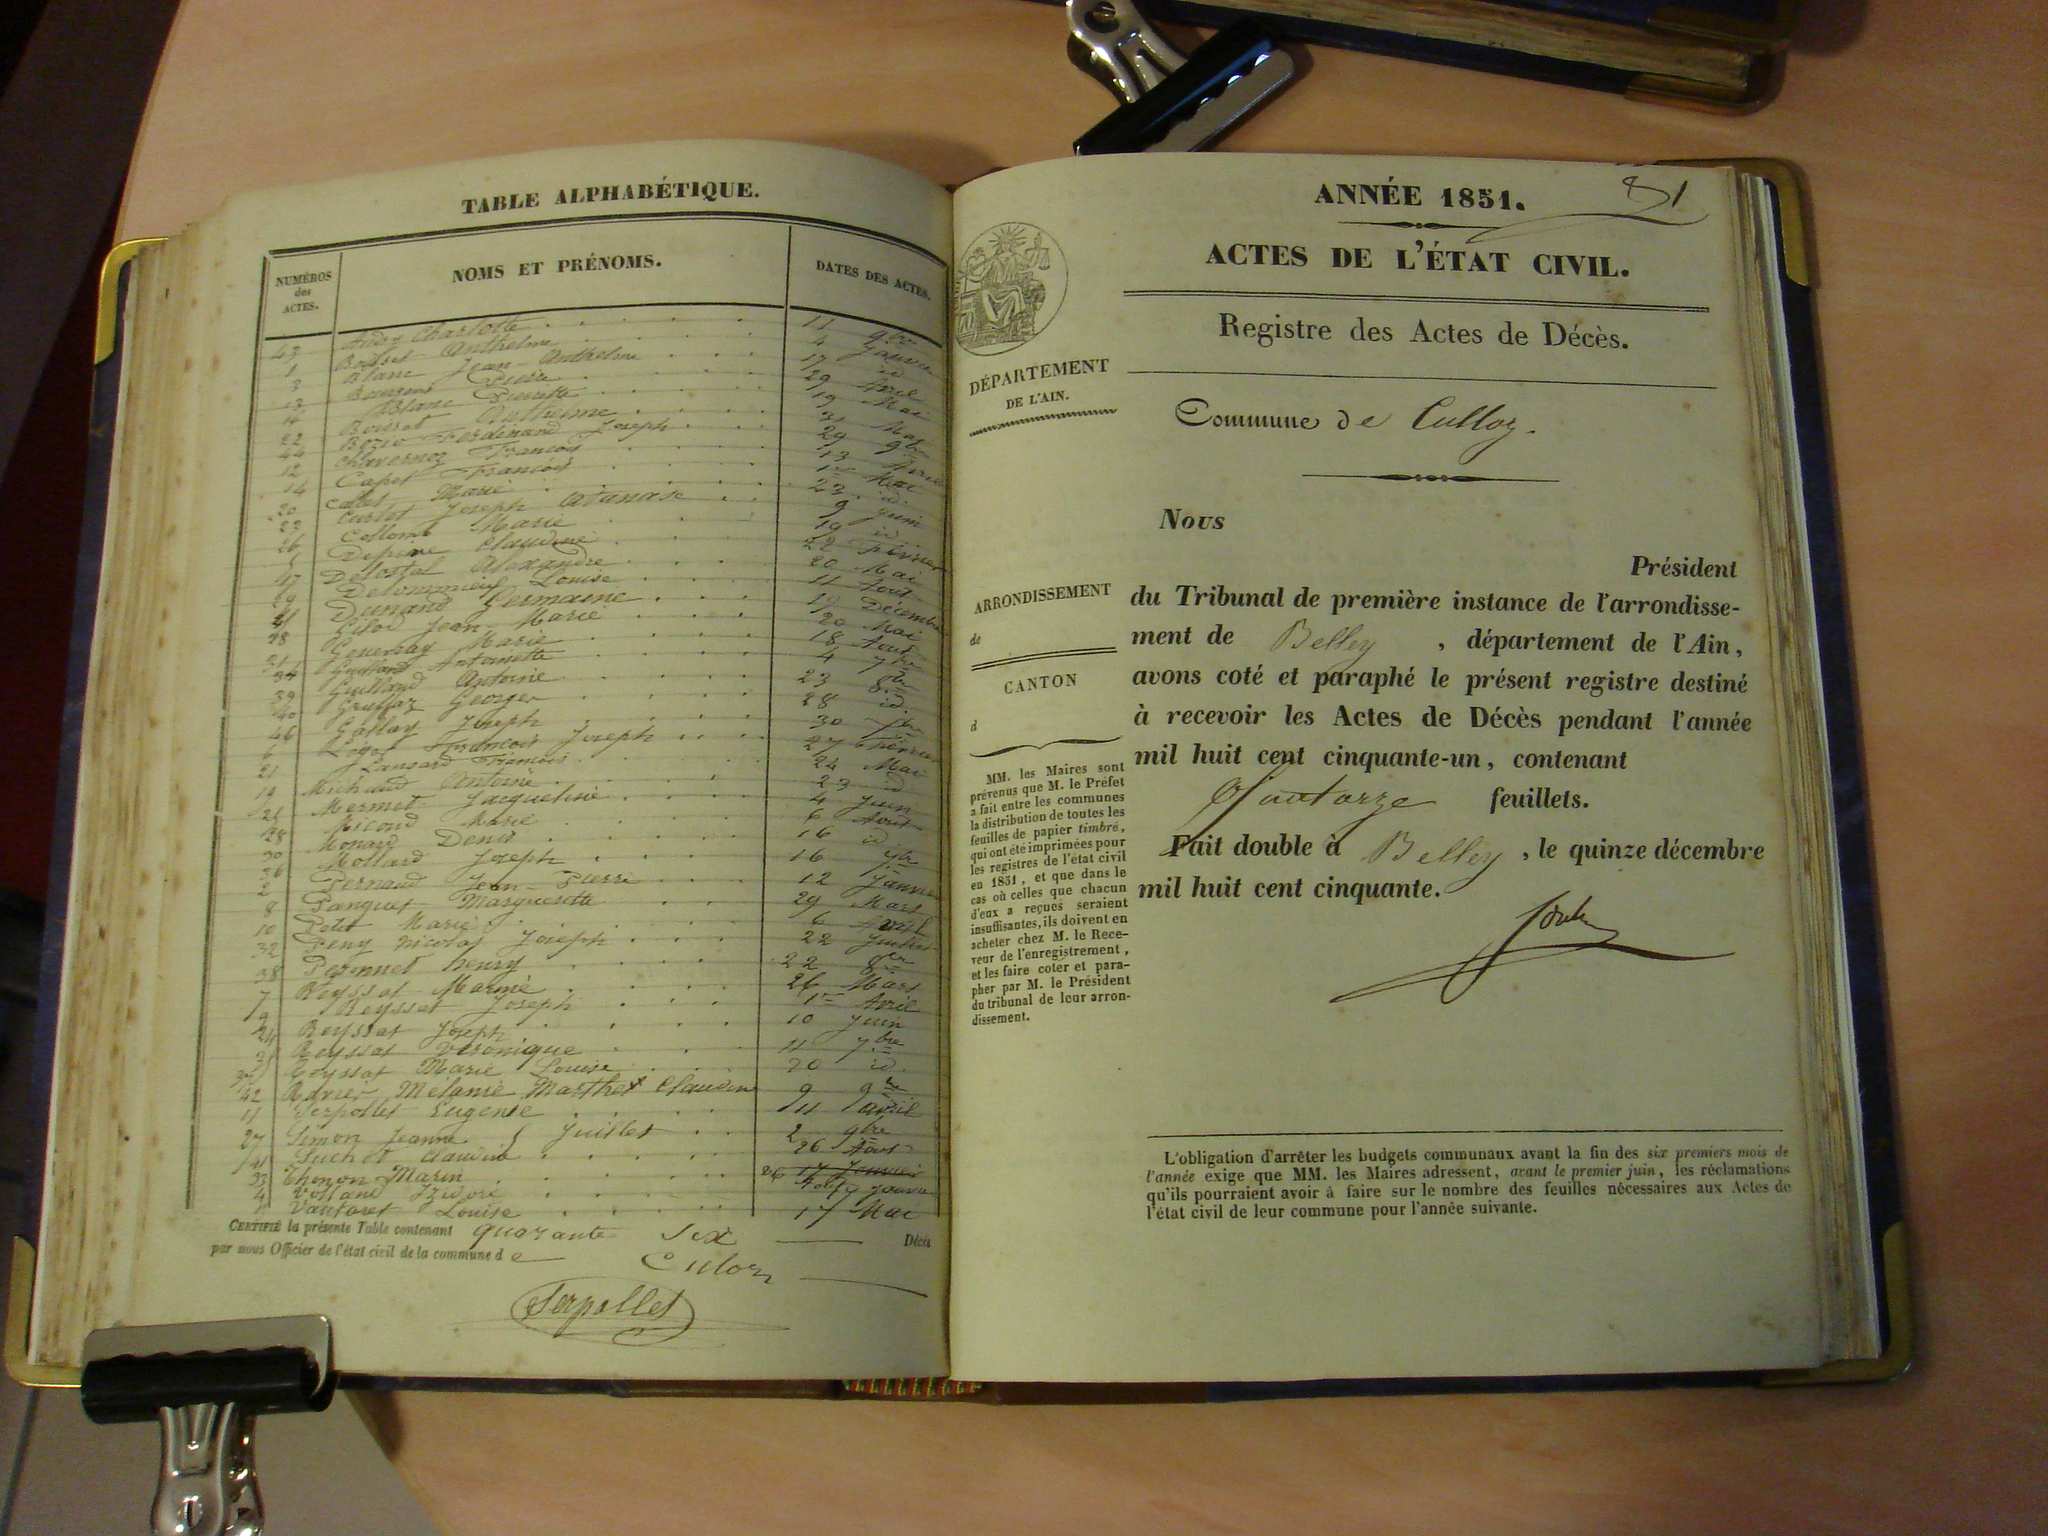 TABLE ALPHABÉTIQUE.
NUMÉROS
des
ACTES.
NOMS ET PRÉNOMS.
DATES DES ACTES.
43 Charlotte 11 9bre
1 Anthelme 4 Janvier
3 Blanc Jean Anthelme 17 id
13 Pierre 29 Avril
Blanc Pierrette 19 Mai
22 Anthelme 31 Mai
44 Ferdinand Joseph 29 9bre
12 Chavernoz François 13 Avril
14 Capet François 1er Mai
20 Marie 23 id.
23 Joseph Atanase 9 Juin
26 Collomb Marie 19 id.
5 Claudine 22 Février
Alexandre 20 Mai
29 Louise 11 Août
Dunand Germaine 19 Décembre
18 Jean-Marie 20 Mai
31 Marie 18 Août
34 Guilland Antoinette 4 7bre
39 Guilland Antoine 23 8bre
40 Georges 28 id.
46 Joseph 30
6 François Joseph 27 Février
21 Lansard François 24 Mai
19 Michaud Antoine 23 id
Mermet Jacqueline 4 Juin
28 Micoud Marie 6 Août
30 Monard Denis 16 id
36 Mollard Joseph 16 7bre
2 Pernaud Jean-Pierre 12 Janvier
8 Panguet Marguerite 29 Mars
10 Petit Marie 6 Avril
32 Peny Nicolas Joseph 22
38 Peronnet henry 22 8bre
7 Reyssat Marie 26 Mars
9 Reyssat Joseph 1er Avril
24 Reyssat Joseph 10 Juin
Reyssat Véronique 11 7bre
Marie Louise 20 id.
42 Mélanie Marthe Claudine 9 9bre
11 Serpollet Eugénie 11 avril
27 Simon Jeanne Juillet
41 Suchet Claudine 2 9bre
33 Thenon Marin 26 Août
4 Volland Izidore 17 Janvier
Vautaret Louise 17 Mai
CERTIFIÉ la présente Table contenant quarante Six Décès
par nous Officier de l'état civil de la commune de Culoz
Serpollet
ANNÉE 1851.
81
ACTES DE L'ÉTAT CIVIL.
Registre des Actes de Décès.
DÉPARTEMENT
DE L'AIN.
Commune de Culloz.
Nous
Président
du Tribunal de première instance de l'arrondisse-
ment de Belley, département de l'Ain,
avons coté et paraphé le présent registre destiné
à recevoir les Actes de Décès pendant l'année
mil huit cent cinquante-un, contenant
feuillets.
Fait double à Belley, le quinze décembre
mil huit cent cinquante.
ARRONDISSEMENT
de
CANTON
d
MM. les Maires sont
prévenus que M. le Préfet
a fait entre les communes
la distribution de toutes les
feuilles de papier timbré,
qui ont été imprimées pour
les registres de l'état civil
en 1851, et que dans le
cas où celles que chacun
d'eux a reçues seraient
insuffisantes, ils doivent en
acheter chez M. le Rece-
veur de l'enregistrement,
et les faire coter et para-
pher par M. le Président
du tribunal de leur arron-
dissement.
L'obligation d'arrêter les budgets communaux avant la fin des six premiers mois de
l'année exige que MM. les Maires adressent, avant le premier juin, les réclamations
qu'ils pourraient avoir à faire sur le nombre des feuilles nécessaires aux Actes de
l'état civil de leur commune pour l'année suivante.